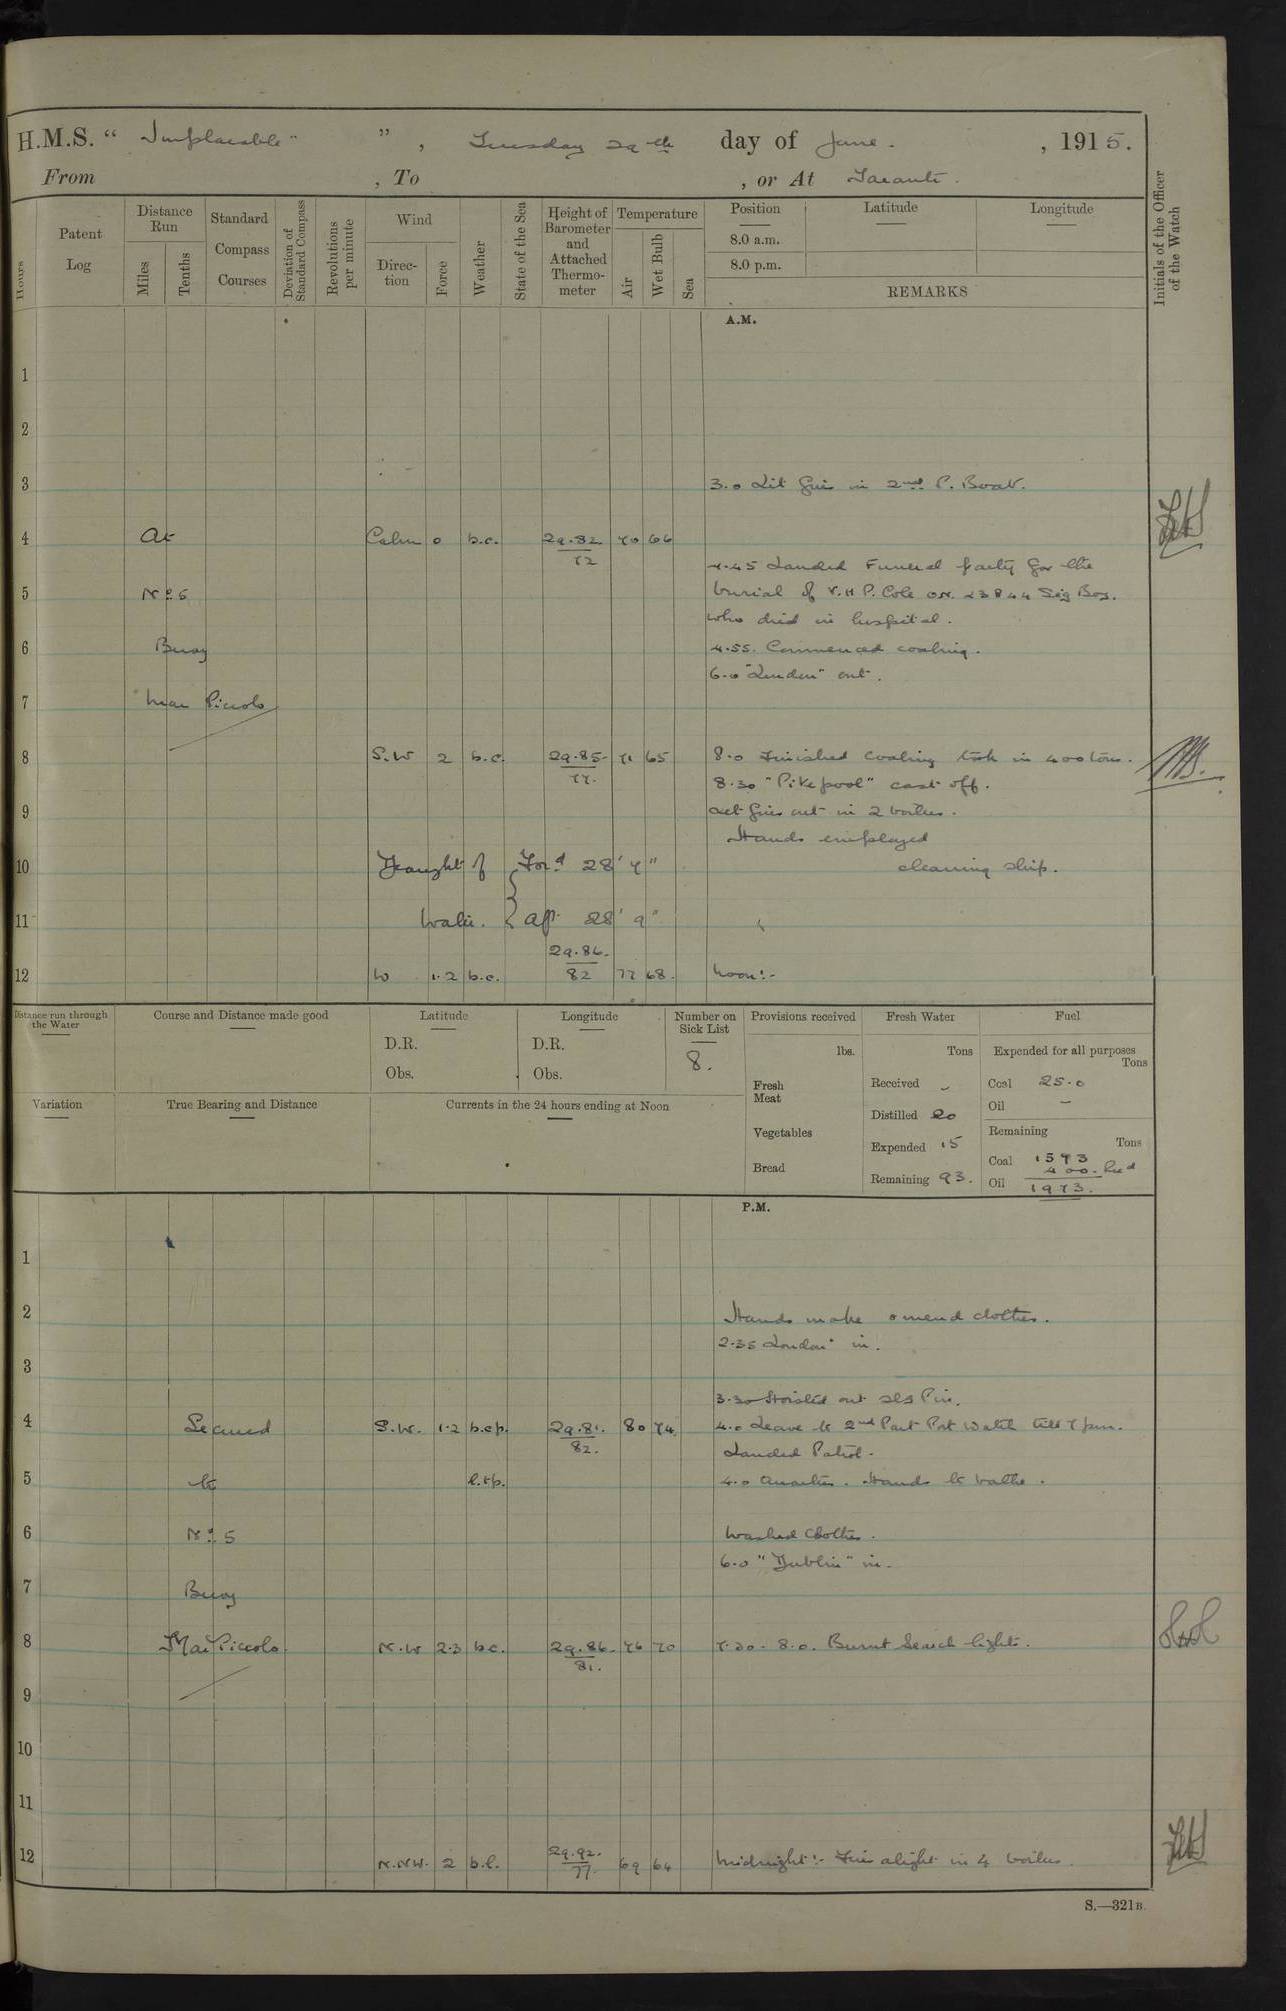 H.M.S. " Implacable " , Tuesday 29th day of June. , 1915.
From , To , or At Taranto.
Hours
Patent Log
Distance Run
Miles
Tenths
Standard Compass Courses
Deviation of Standard Compass
Revolutions per minute
Wind
Direction
Force
Weather
State of the Sea
Height of Barometer and Attached Thermometer
Temperature
Air
Wet Bulb
Sea
Position
Latitude
Longitude
8.0 a.m.
8.0 p.m.
REMARKS
Initials of the Officer of the Watch
A.M.
1
2
3 3.0 Lit fires in 2nd P. Boat.
4 At Calm 0 b.c. 29.82 70 66
72
4.45 Landed Funeral party for the
5 No. 5 burial of V.H.P. Cole O.N. 23844 Sig Boy.
who died in hospital.
6 Buoy 4.55. Commenced coaling.
6.0 "London" out.
7 Mar Piccolo
8 S.W 2 b.c. 29.85 71 65 8.0 Finished coaling took in 400 tons.
77. 8.30 "Pikepool" cast off.
9 Let fires out in 2 boilers.
Hands employed
10 Draught of { For'd 28' 7" cleaning ship.
11 Water. { aft 28' 9"
29.86.
12 W 1.2 b.c. 82 77 68. Noon:-
Distance run through the Water
Course and Distance made good
Latitude
D.R.
Obs.
Longitude
D.R.
Obs.
Number on Sick List
8.
Provisions received
lbs.
Fresh Meat
Vegetables
Bread
Fresh Water
Tons
Received -
Distilled 20
Expended 15
Remaining 93.
Fuel
Expended for all purposes
Tons
Coal 25.0
Oil -
Remaining
Tons
Coal 1573
400. Rec'd
Oil 1973.
Variation
True Bearing and Distance
Currents in the 24 hours ending at Noon
P.M.
1
2 Hands make & mend clothes.
2.35 London" in.
3
3.30 Hoisted out Pin.
4 Secured S.W. 1.2 b.c.p. 29.81. 80 74. 4.0 Leave to 2nd Part Port Watch till 7 pm.
82. Landed Patrol.
5 to 4.0 Quarters. Hands to bathe.
6 No. 5 Washed Clothes.
6.0 "Dublin" in.
7 Buoy
8 Mar Piccolo N.W 2.3 b.c. 29.86 76 70 7.30 - 8.0. Burnt Search lights.
81.
9
10
11
12 N.NW. 2 b.c. 29.92. 69 64 Midnight:- Fires alight in 4 boilers.
77.
S.—321B.